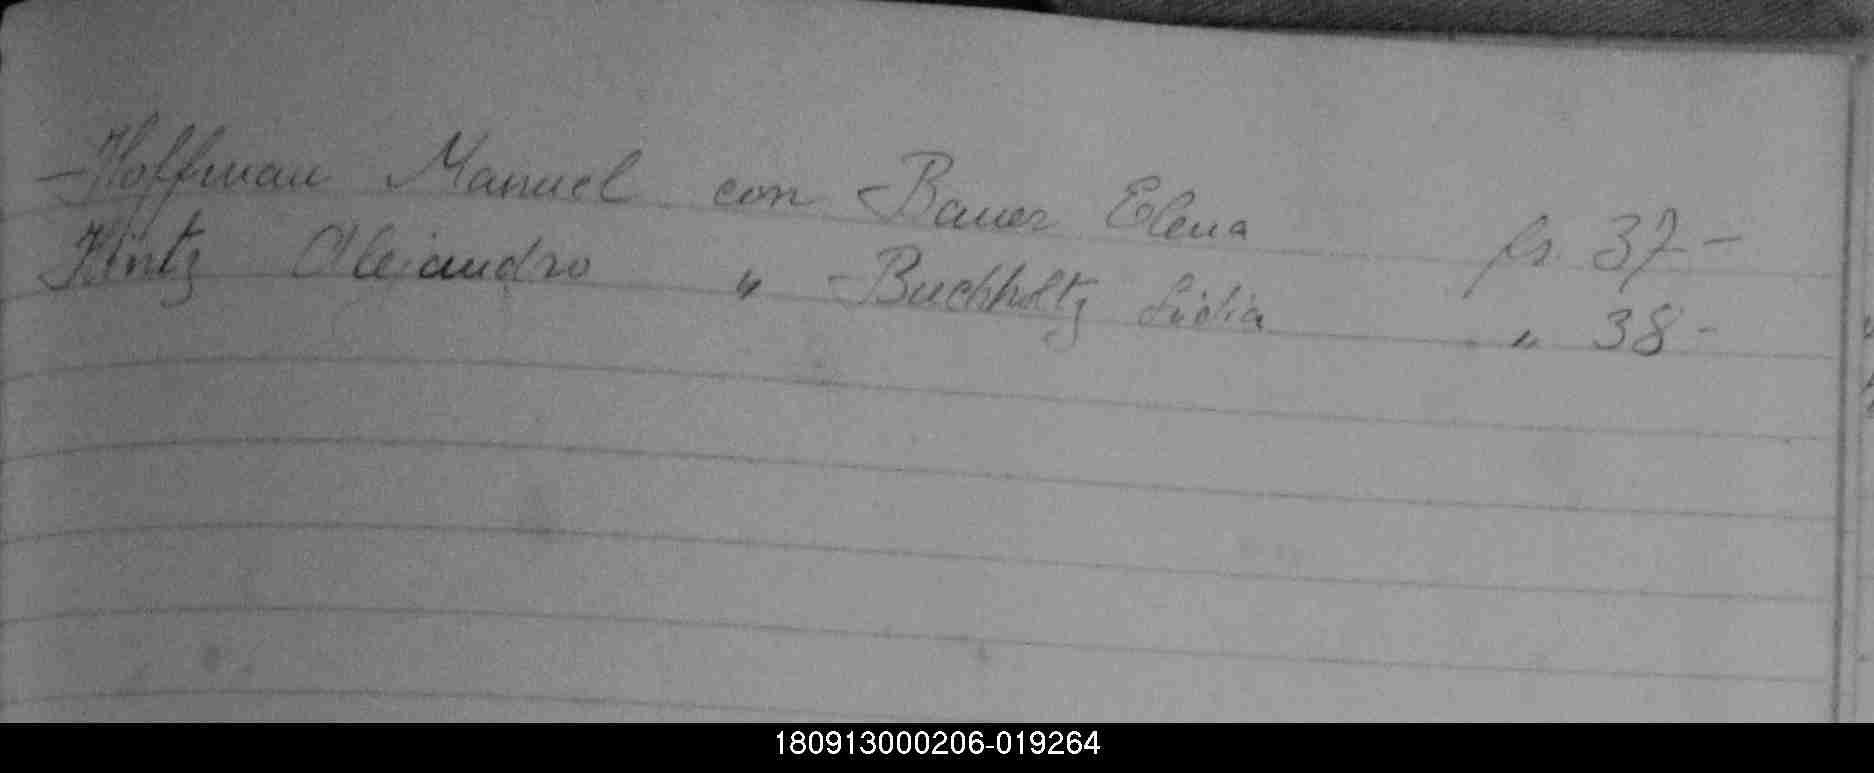 Hoffman Manuel con Bauer Elena fs. 37-
Hintz Alejandro " Buchholtz Lidia " 38-
180913000206-019264